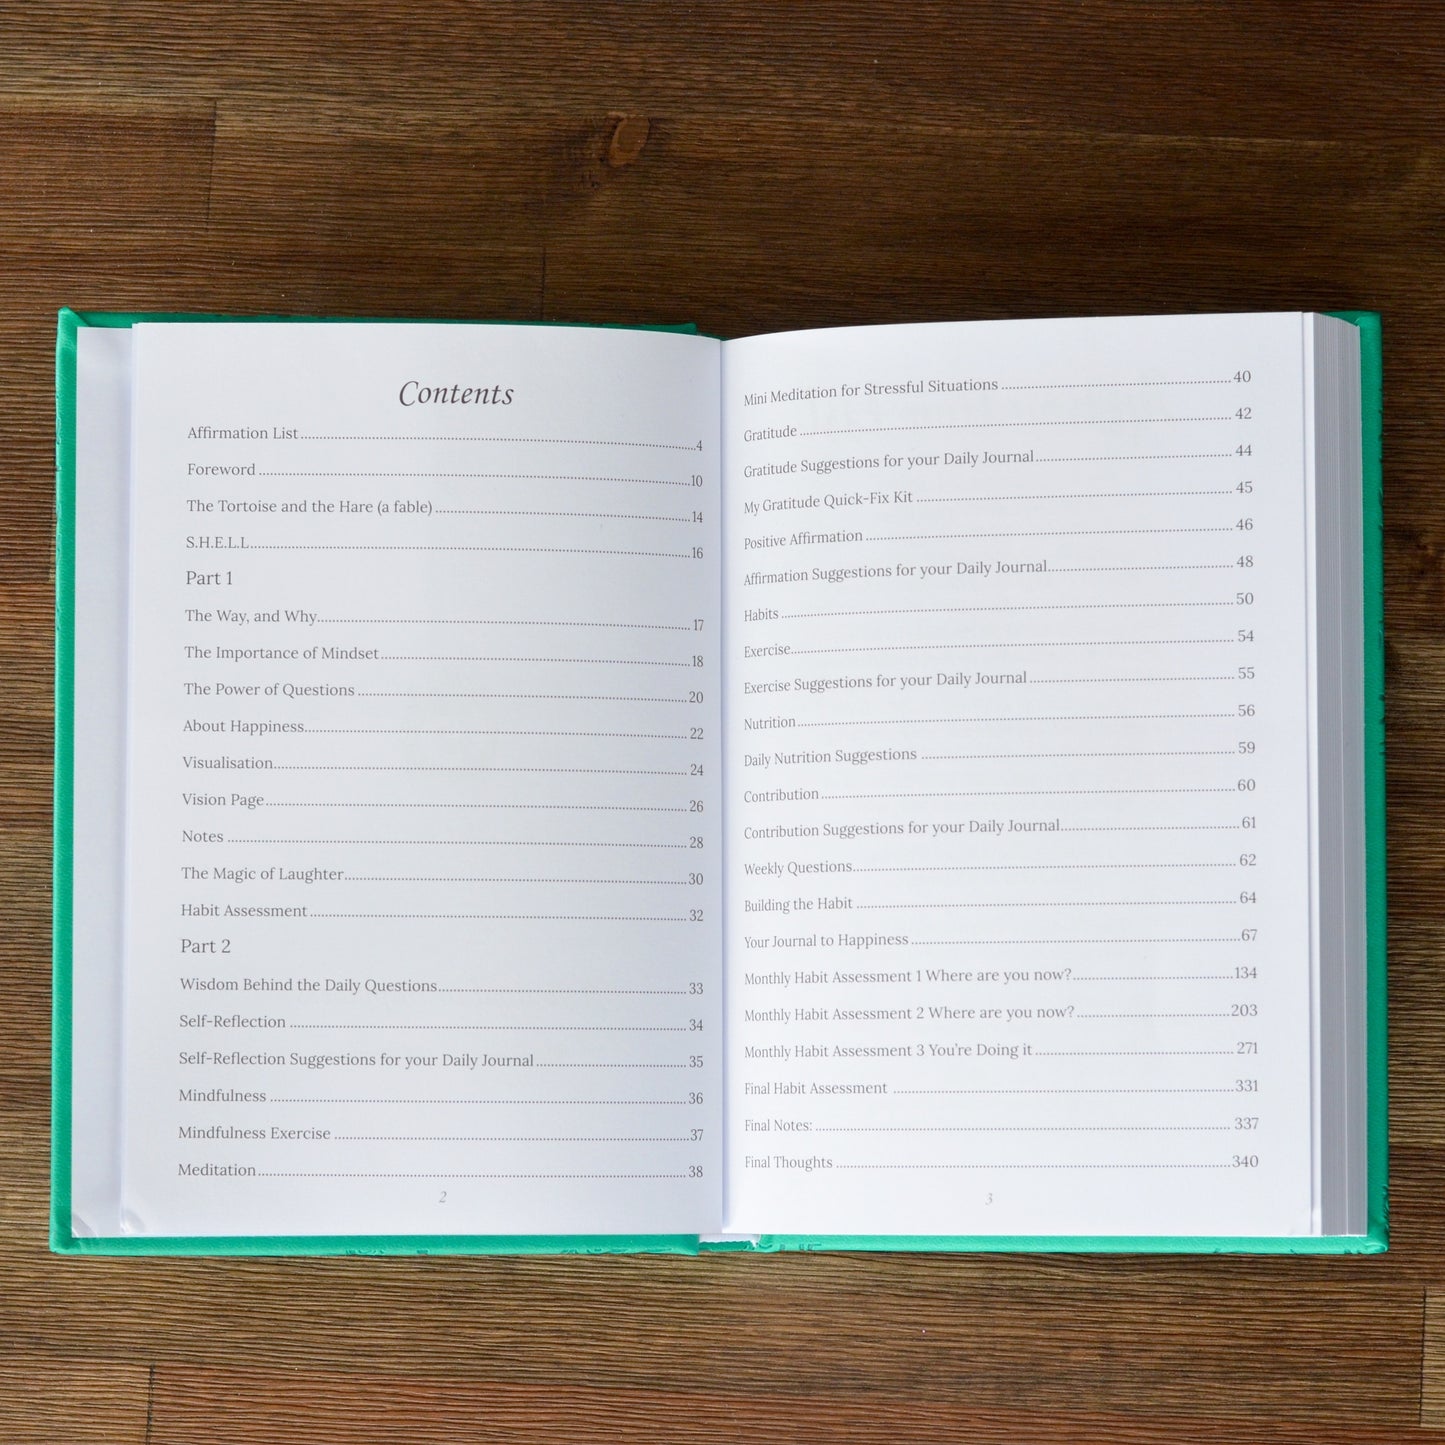 Contents
Affirmation List 4
Foreword 10
The Tortoise and the Hare (a fable) 14
S.H.E.L.L 16
Part 1
The Way, and Why 17
The Importance of Mindset 18
The Power of Questions 20
About Happiness 22
Visualisation 24
Vision Page 26
Notes 28
The Magic of Laughter 30
Habit Assessment 32
Part 2
Wisdom Behind the Daily Questions 33
Self-Reflection 34
Self-Reflection Suggestions for your Daily Journal 35
Mindfulness 36
Mindfulness Exercise 37
Meditation 38
2
Mini Meditation for Stressful Situations 40
Gratitude 42
Gratitude Suggestions for your Daily Journal 44
My Gratitude Quick-Fix Kit 45
Positive Affirmation 46
Affirmation Suggestions for your Daily Journal 48
Habits 50
Exercise 54
Exercise Suggestions for your Daily Journal 55
Nutrition 56
Daily Nutrition Suggestions 59
Contribution 60
Contribution Suggestions for your Daily Journal 61
Weekly Questions 62
Building the Habit 64
Your Journal to Happiness 67
Monthly Habit Assessment 1 Where are you now? 134
Monthly Habit Assessment 2 Where are you now? 203
Monthly Habit Assessment 3 You're Doing it 271
Final Habit Assessment 331
Final Notes: 337
Final Thoughts 340
3